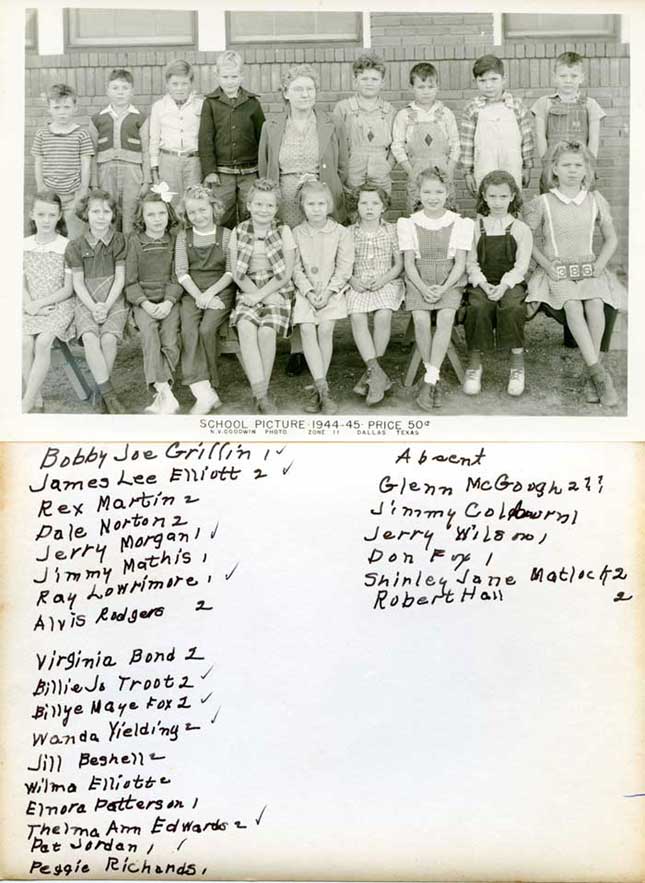 386
SCHOOL PICTURE · 1944-45 · PRICE 50¢
N.V. GOODWIN PHOTO. ZONE 11 DALLAS TEXAS
Bobby Joe Grillin 1 ✓
James Lee Elliott 2 ✓
Rex Martin 2
Dale Norton 2
Jerry Morgan 1 ✓
Jimmy Mathis 1
Ray Lowrimore 1 ✓
Alvis Rodgers 2
Virginia Bond 2
Billie Jo Troot 2 ✓
Billye Maye Fox 2 ✓
Wanda Yielding 2 ✓
Jill Beshell 2
Wilma Elliott 2
Elnora Patterson 1
Thelma Ann Edwards 2 ✓
Pat Jordan 1 ✓
Peggie Richards 1
Absent
Glenn McGough 2??
Jimmy 1
Jerry Wilson 1
Don Fox 1
Shinley Jane Matlock 2
Robert Hall 2